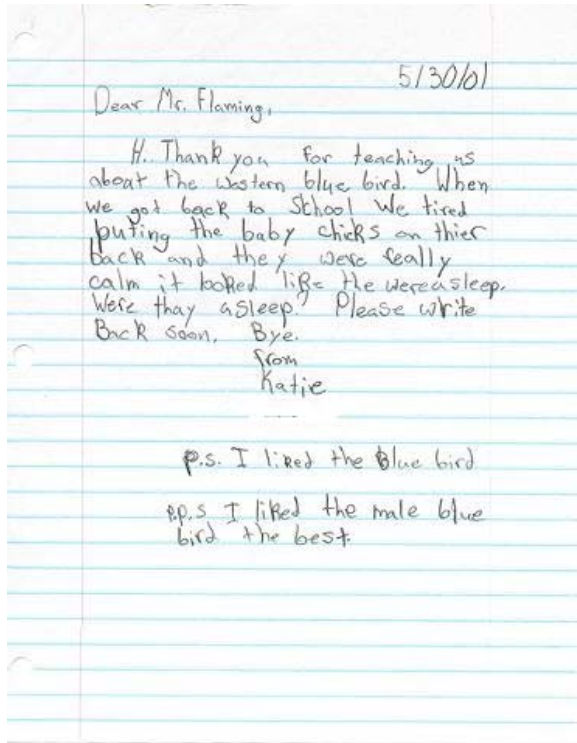 5/30/01
Dear Mr. Flaming,
Hi. Thank you for teaching us
about the western blue bird. When
we got back to School We tired
puting the baby chicks on thier
back and they were really
calm it looked like the were asleep.
Were thay asleep? Please write
Back soon. Bye.
from
Katie
p.s. I liked the Blue bird
p.p.s I liked the male blue
bird the best.